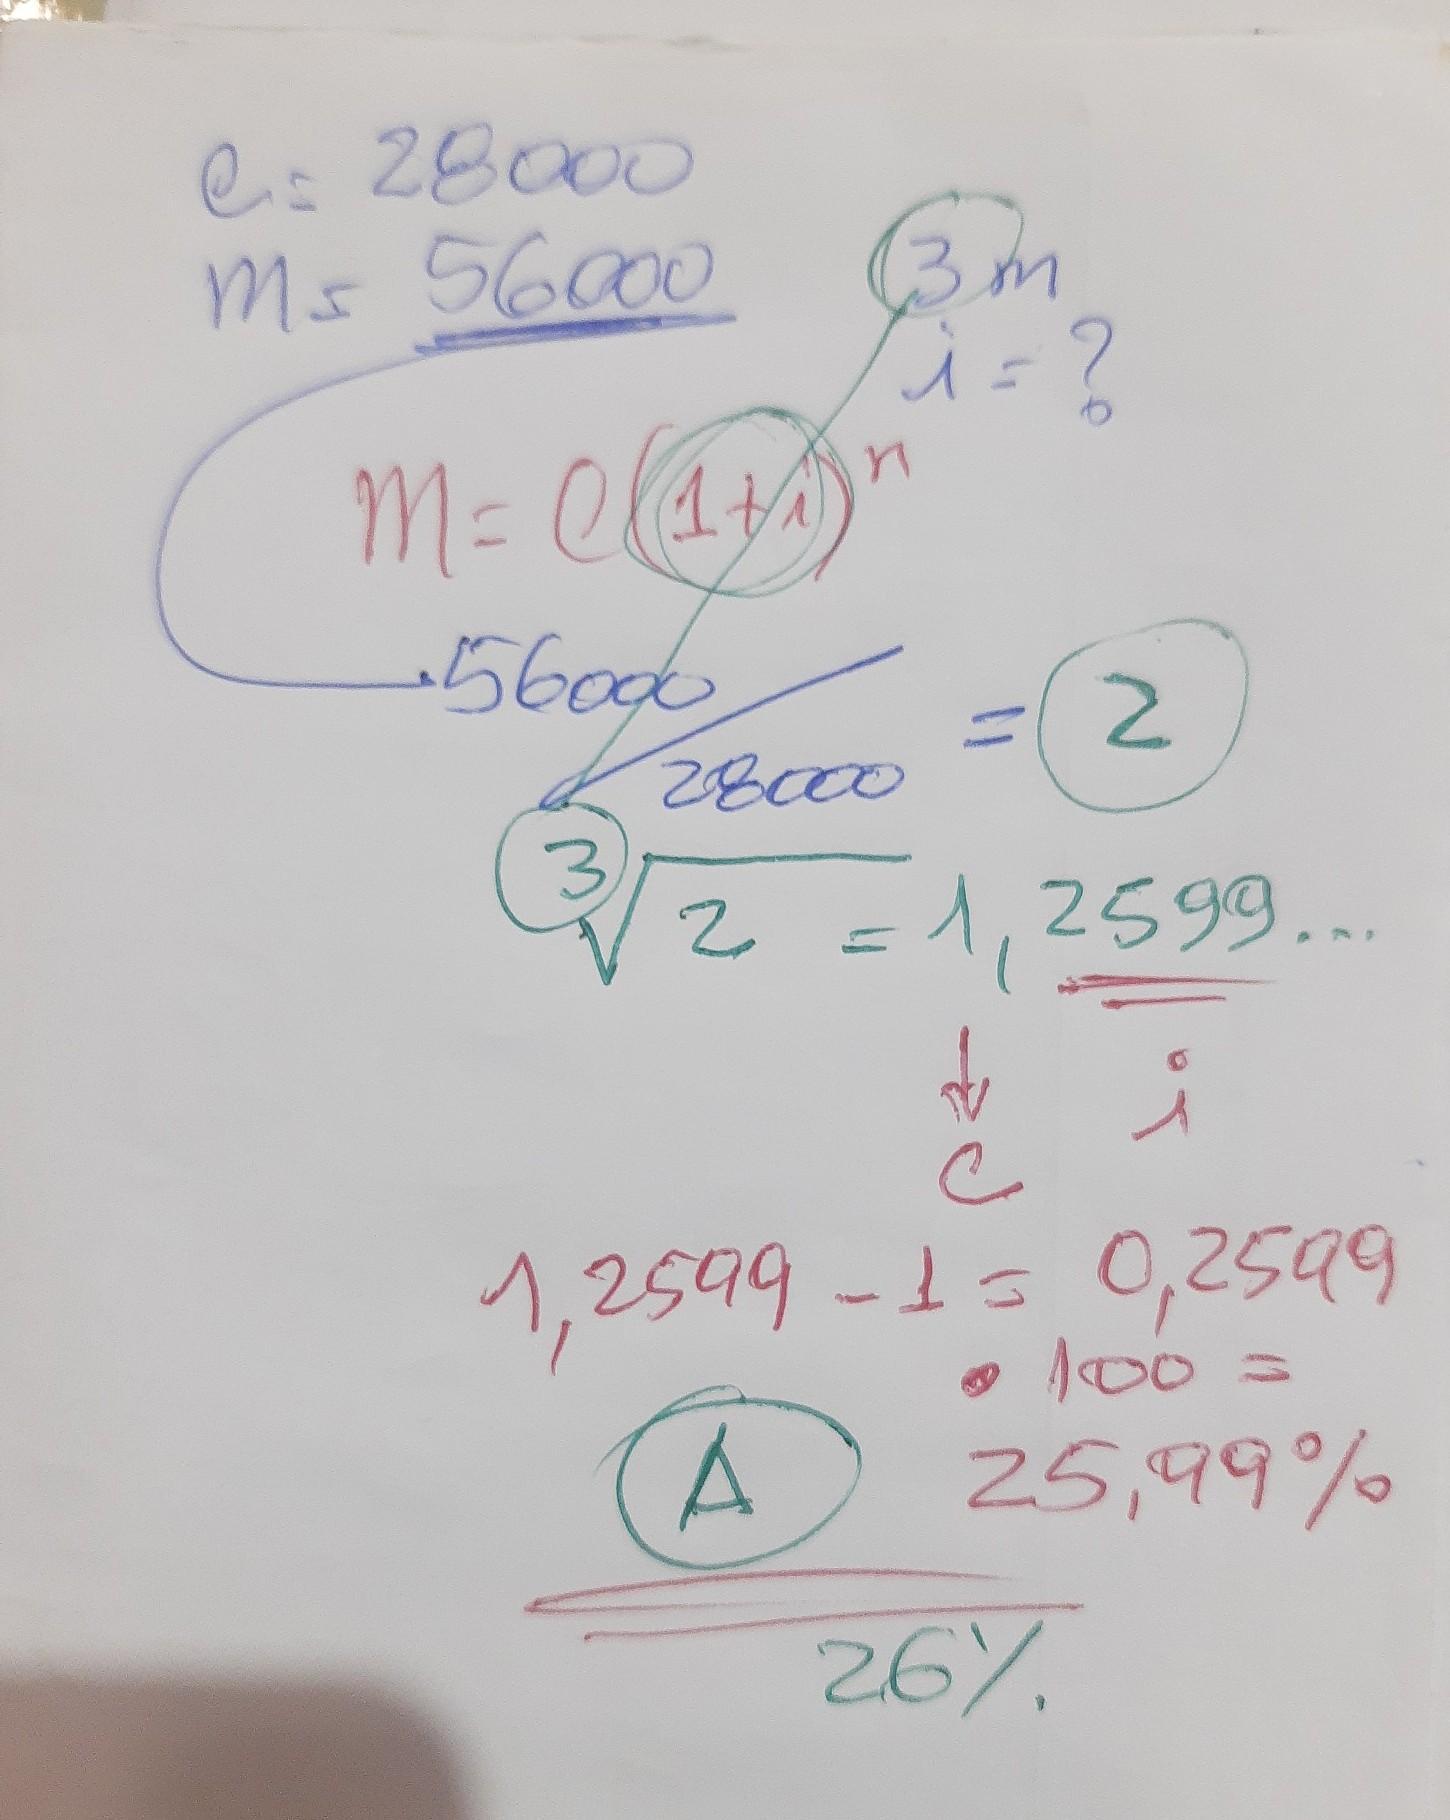 C = 28000
M = 56000
3 m
i = ?
M = C(1+i)^n
56000
28000
= 2
3√2 = 1,2599...
↓
C
i
1,2599 - 1 = 0,2599
• 100 =
25,99%
A
26%.